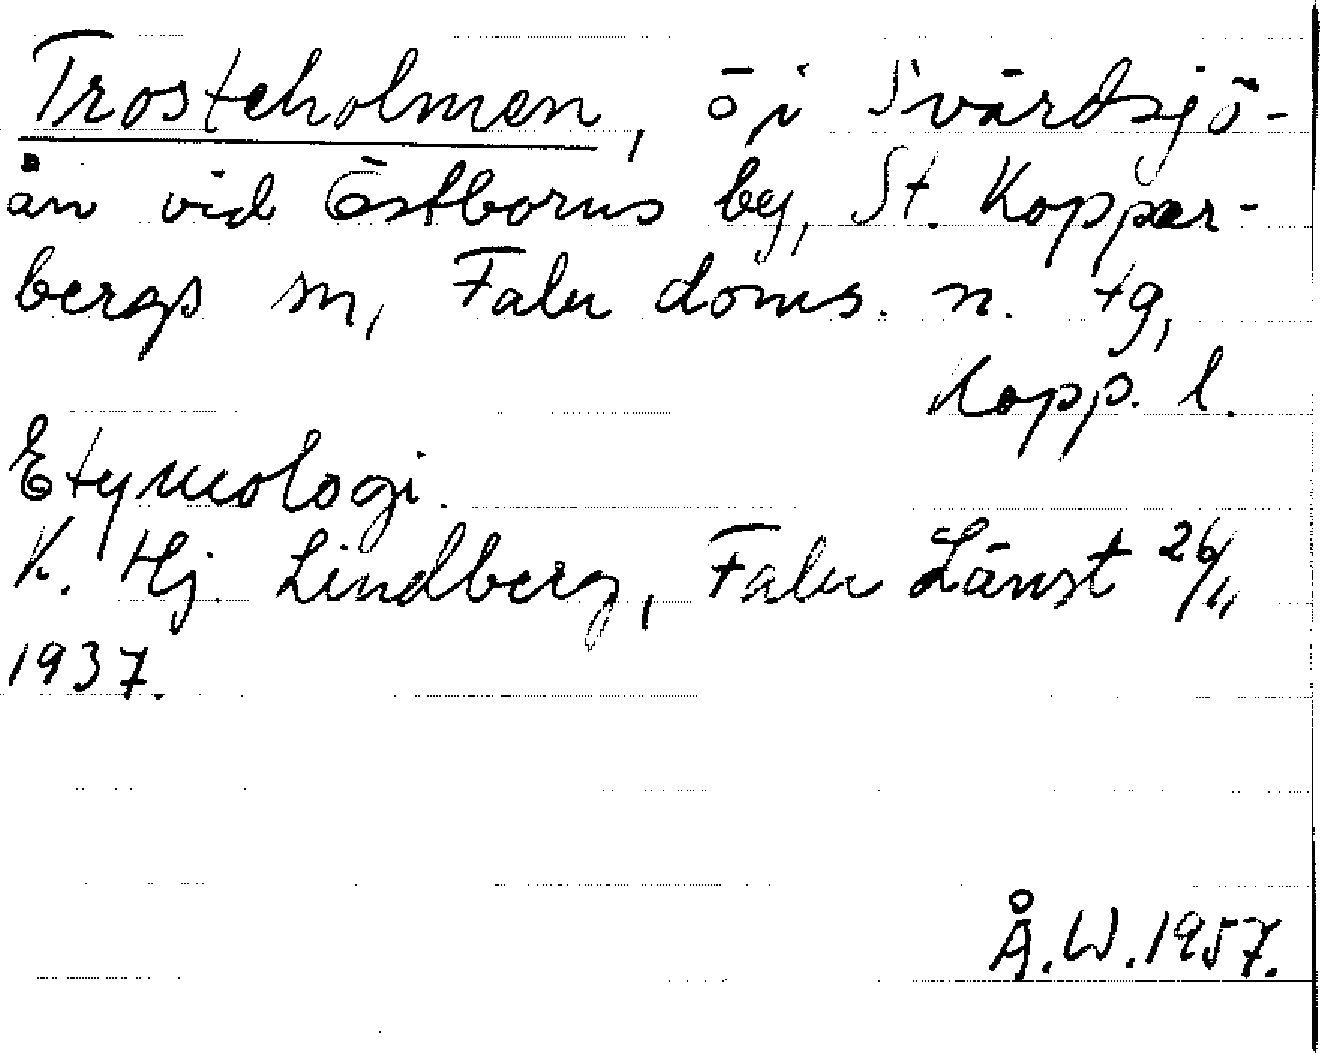 Trosteholmen, ö i Svärdsjö-
ån vid Östborns by, St. Koppar-
bergs sn, Falu doms. n. tg,
Kopp. l.
Etymologi.
K. Hj. Lindberg, Falu Länst 26/11
1937.
Å.W.1957.